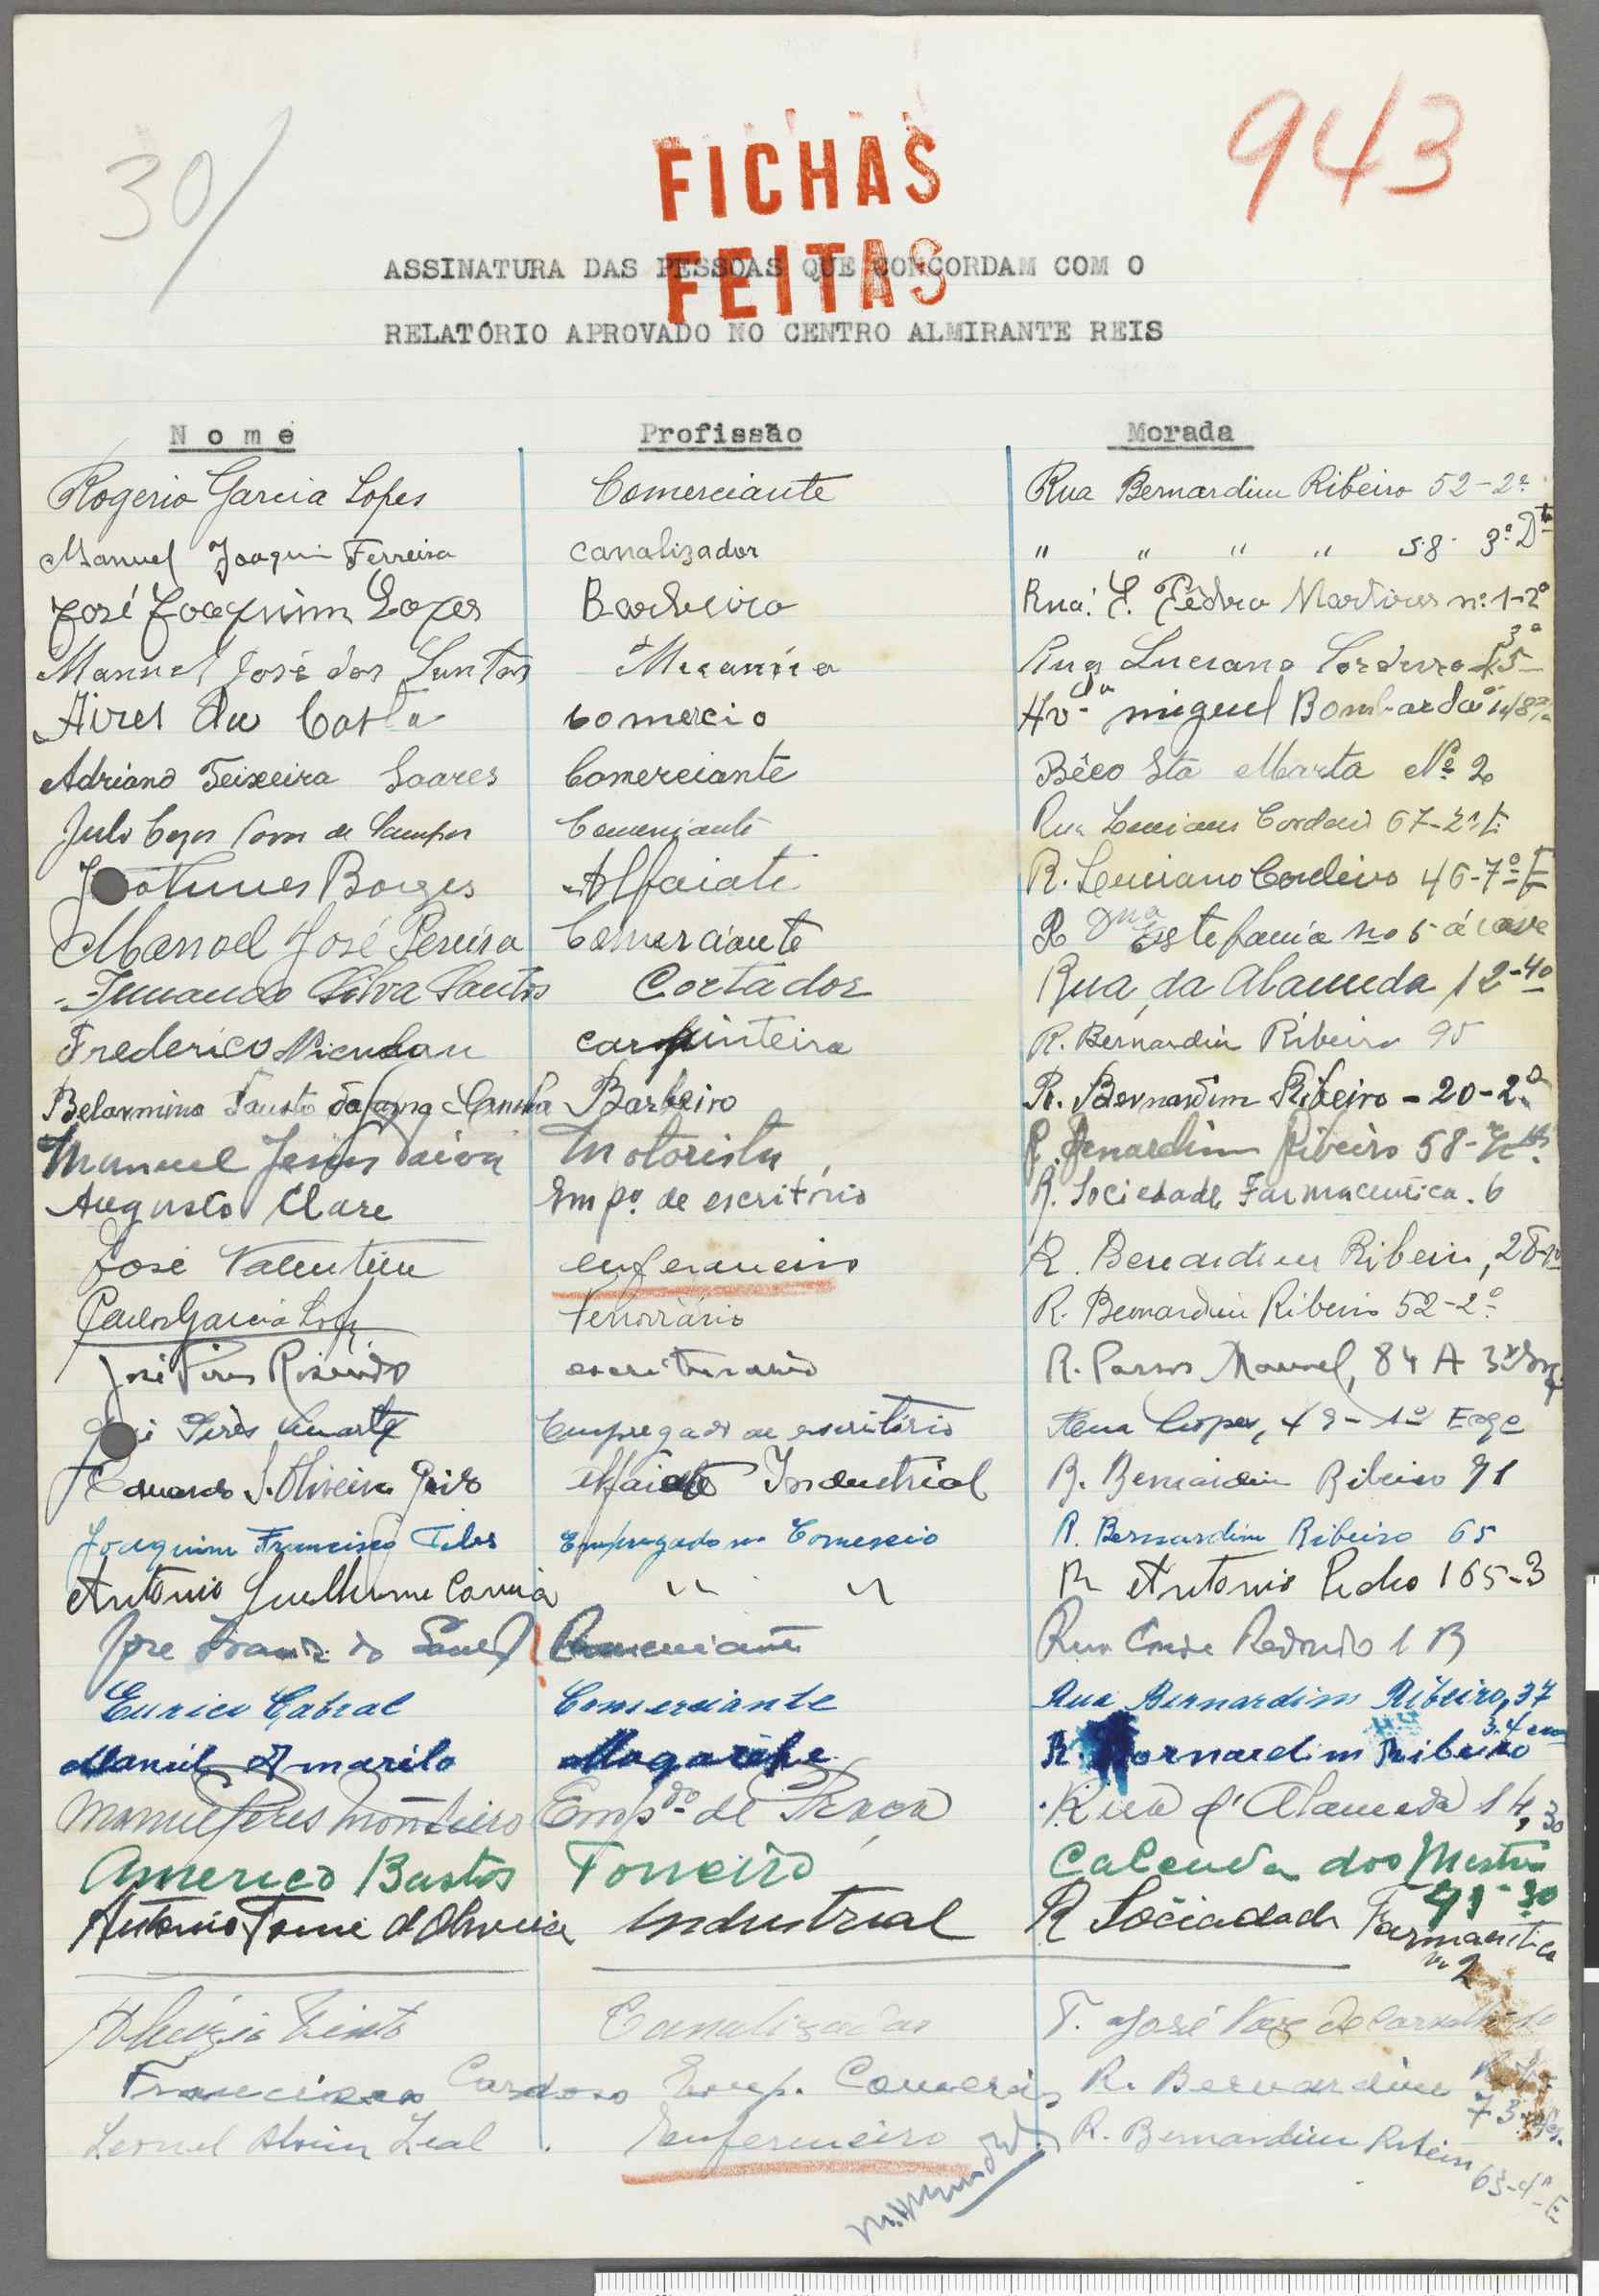 30/
943
FICHAS
FEITAS
ASSINATURA DAS PESSOAS QUE CONCORDAM COM O
RELATÓRIO APROVADO NO CENTRO ALMIRANTE REIS
Nome Profissão Morada
Rogerio Garcia Lopes Comerciante Rua Bernardim Ribeiro 52-2º
Manuel Joaquim Ferreira canalizador " " " " 58 3º Dto
José Joaquim Lopes Barbeiro Rua Pedro Martires nº 1-2º
Manuel José dos Santos Mecanico Rua Luciano Cordeiro
Aires da Costa comercio Avda miguel Bombarda 148
Adriano Teixeira Soares Comerciante Bêco Sta Marta Nº 2
Julio de Campos Comerciante Rua Luciano Cordeiro 67-2º
Nunes Borges Alfaiate R. Luciano Cordeiro 46-7º E
Manoel José Pereira Comerciante R Dna Estefania no 5 á cave
Fernando Silva Santos Cortador Rua da Alameda 12-4º
Frederico carpinteiro R. Bernardim Ribeiro 95
Belarmino Fausto da Gama Cunha Barbeiro R. Bernardim Ribeiro - 20-2º
Manuel Jesus Paiva Motorista R. Bernardim Ribeiro 58-
Augusto Clare Empº. de escritório R. Sociedade Farmaceutica. 6
José Valentim enfermeiro R. Bernardim Ribeiro, 28
Carlos Garcia Lopes Ferroviário R. Bernardim Ribeiro 52-2º
José Pires Rosendo escriturario R. Passos Manuel, 84 A 3º Esq
Pires Duarte Empregado de escritório Rua Lopes, 49-1º Esqe
Eduardo S. Oliveira Alfaiate Industrial R. Bernardim Ribeiro 91
Joaquim Francisco Teles Empregado no Comercio R. Bernardim Ribeiro 65
Antonio Guilherme Correia " " R Antonio Pedro 165-3
José do Comerciante Rua Conde Redondo 1 B
Eurico Cabral Comerciante Rua Bernardim Ribeiro, 37
Manuel Amarilo Magarefe R. Bernardim Ribeiro
Manuel Peres Monteiro Empdo de Praça Rua d'Alameda 14, 3º
Americo Bastos Torneiro Calcada dos Mestres
41-3º
Antonio Tomé d'Oliveira Industrial R Sociadade Farmacutica
nº 2
Aluizio Pinto Canalizador T. José Vaz de Carvalho
Francisco Cardoso Emp. Comercio R. Bernardim
73
Leonel Leal Enfermeiro R. Bernardim Ribeiro
63-4º-E